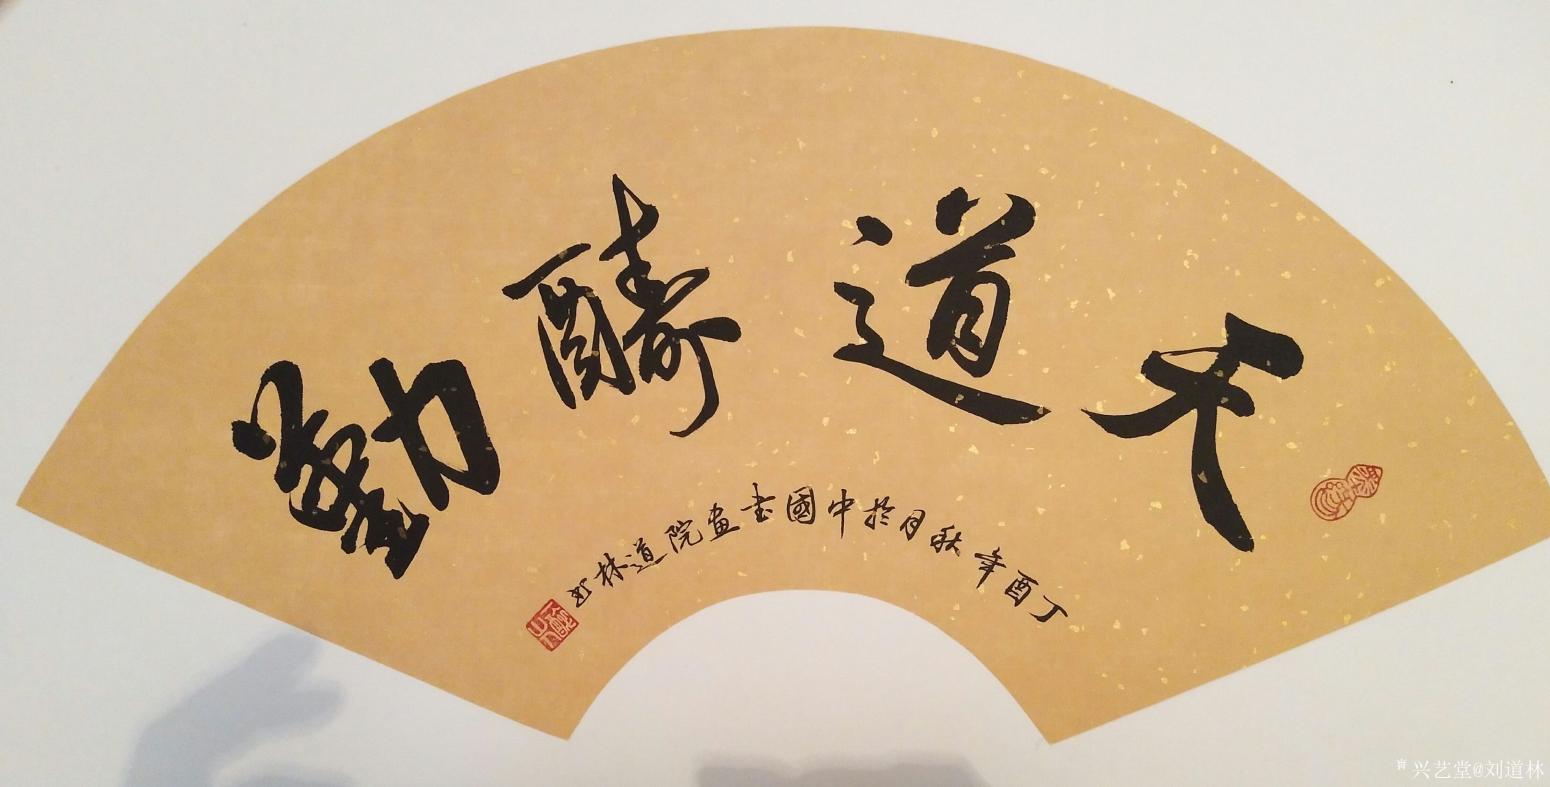 天道酬勤
丁酉年秋月於中國书画院道林书
兴艺堂@刘道林